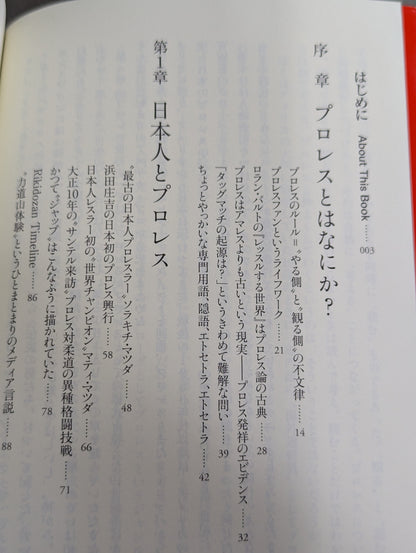 はじめに About This Book …… 003
序 章 プロレスとはなにか？
プロレスのルール＝〝やる側〟と〝観る側〟の不文律 …… 14
プロレスファンというライフワーク …… 21
ロラン・バルトの『レッスルする世界』はプロレス論の古典 …… 28
プロレスはアマレスよりも古いという現実――プロレス発祥のエビデンス …… 32
「タッグマッチの起源は？」というきわめて難解な問い …… 39
ちょっとやっかいな専門用語、隠語、エトセトラ、エトセトラ …… 42
第１章 日本人とプロレス
〝最古の日本人プロレスラー〟ソラキチ・マツダ …… 48
浜田庄吉の日本初のプロレス興行 …… 58
日本人レスラー初の〝世界チャンピオン〟マティ・マツダ …… 66
大正10年の〝サンテル来訪〟プロレス対柔道の異種格闘技戦 …… 71
かつて〝ジャップ〟はこんなふうに描かれていた …… 78
Rikidozan Timeline …… 86
〝力道山体験〟というひとまとまりのメディア言説 …… 88